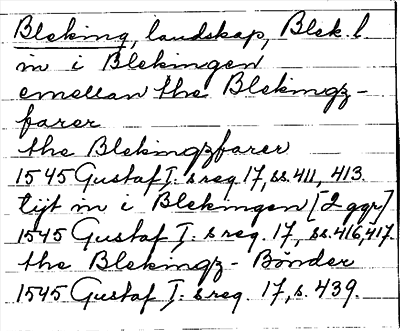 Bleking, landskap, Blek. l.
in i Blekingen
emellan the Blekingz-
farer
the Blekingzfarer
1545 Gustaf I: s reg. 17, ss. 411, 413.
tijt in i Blekingen [2 ggr]
1545 Gustaf I: s reg. 17, ss. 416, 417.
the Blekingz - Bönder
1545 Gustaf I: s reg. 17, s. 439.